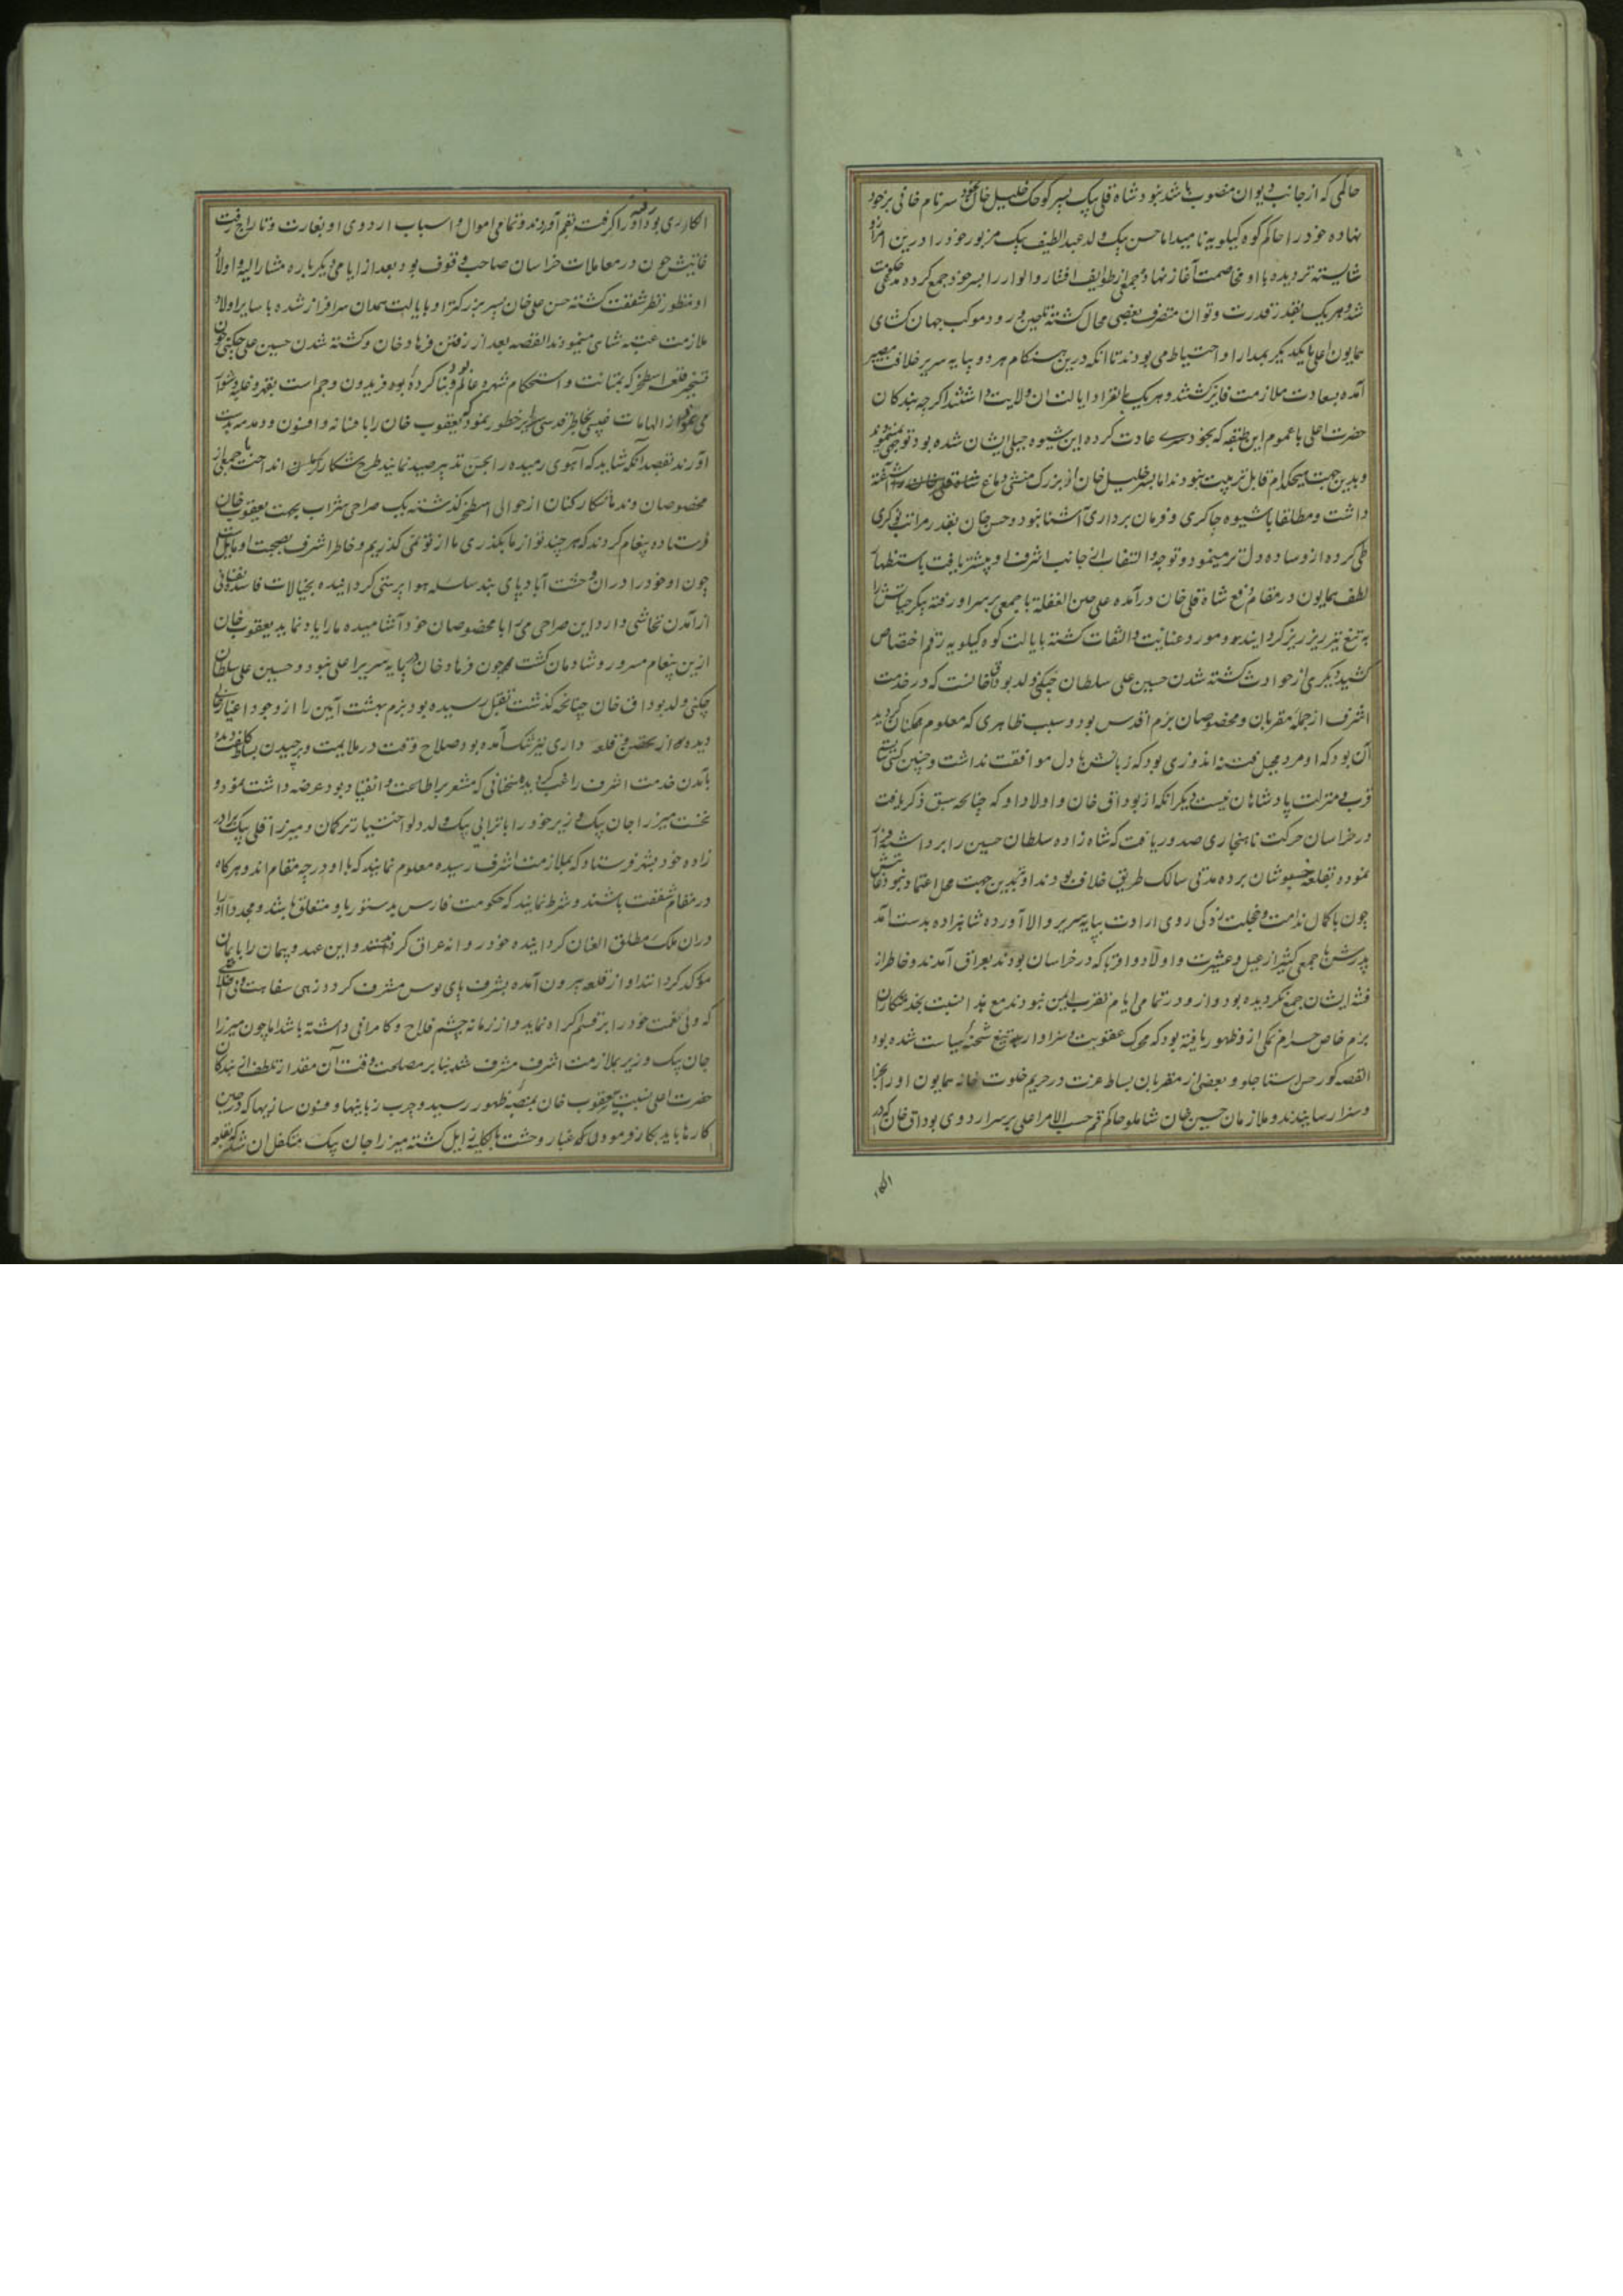 حاکمی که از جانب دیوان منصوب باشد نبود شاه قلی بیک پسر کوچک خلیل خان خود سر نام خانی بر خود
نهاده خود را حاکم کوه کیلویه نامید اما حسن بیک ولد عبد اللطیف بیک مزبور خود را درین امر ازو
شایسته تر دیده با او مخاصمت آغاز نهاد و جمعی از طوایف افشار و الوار را بر سر خود جمع کرده مدعی حکومت
شد و هر یک بقدر قدرت و توان متصرف بعضی محال کشته تا حین ورود موکب جهان کشای
همایون اعلی با یکدیکر بمدارا و احتیاط می بودند تا انکه درین هنکام هر دو بپایه سریر خلافت مصیر
آمده بسعادت ملازمت فایز کشتند و هر یک بانفراد ایالت ان ولایت داشتند اکرچه بندکان
حضرت اعلی با عموم این طبقه که بخودسری عادت کرده این شیوه جبلی ایشان شده بود توجهی نمینمودند
و بدین جهت هیچکدام قابل تربیت نبودند اما پسر خلیل خان از بزرک منشی دماغ آشفته
داشت و مطلقا باشیوه چاکری و فرمان برداری آشنا نبود و حسن خان بقدر مراتب نوکری
طی کرده ازو ساده دل تر مینمود و توجه و التفات از جانب اشرف او بیشتر یافت باستظهار
لطف همایون در مقام دفع شاه قلی خان درآمده علی حین الغفله با جمعی بر سر او رفته پیکر حیاتش را
به تیغ تیز ریز ریز کردانید و مورد عنایت و التفات کشته بایالت کوه کیلویه رقم اختصاص
کشید دیکری از حوادث کشته شدن حسین علی سلطان چکنی ولد بوداق خانست که در خدمت
اشرف از جمله مقربان و مخصوصان بزم اقدس بود و سبب ظاهری که معلوم همکنان کردید
آن بود که او مرد محیل فتنه اندوزی بود که زبانش با دل موافقت نداشت و چنین کسی شایسته
قرب و منزلت پادشاهان نیست دیکر انکه از بوداق خان و اولاد او که چنانچه سبق ذکر یافت
در خراسان حرکت ناهنجاری صدور یافت که شاه زاده سلطان حسین را برداشته فرار
نموده بقلعه خبوشان برده مدتی سالک طریق خلاف بودند او نیز بدین جهت محل اعتماد نبود
چون با کمال ندامت و خجلت زدکی روی ارادت بپایه سریر والا آورده شاهزاده بدست آمد
پدرش با جمعی کثیر از عیل و عشیرت و اولاد و اقربا که در خراسان بودند بعراق آمدند و خاطر از
فتنه ایشان جمع نکردیده بود و ازو در تمامی ایام تقرب ایمن نبودند مع هذا نسبت بخدمتکاران
بزم خاص حرام نمکی ازو ظهور یافته بود که محرک عقوبت و سزاوار تیغ شحنه سیاست شده بود
القصه کور حسن استاجلو و بعضی از مقربان بساط عزت در حریم خلوت خانه همایون او را بجزا
و سزا رسانیدند و ملازمان حسین خان شاملو حاکم قم حسب الامر اعلی بر سر اردوی بوداق خان که در
الکا
الکاء ری بود رفته او را کرفته بقم آوردند و تمامی اموال و اسباب اردوی او بغارت و تاراج رفت
غایتش چون در معاملات خراسان صاحب وقوف بود بعد از ایامی دیکر باره مشارالیه و اولاد
او منظور نظر شفقت کشته حسن علی خان پسر بزرکتر او بایالت همدان سرافراز شده با سایر اولاد
ملازمت عتبه شاهی مینمودند القصه بعد از رفتن فرهاد خان و کشته شدن حسین علی چکنی چون
تسخیر قلعه اسطخر که بمتانت و استحکام مشهور عالم و بنا کرده فریدون و جم است بقهر و غلبه دشوار
می نمود از الهامات غیبی بخاطر قدسی خطور نمود که یعقوب خان را بافسانه و افسون و دمدمه بدست
آورند بقصد آنکه شاید که آهوی رمیده را بحسن تدبیر صید نمایند طرح شکار انداخته با جمعی از
مخصوصان و ندما شکار کنان از حوالی اسطخر کذشته یک صراحی شراب بجهت یعقوب خان
فرستاده پیغام کردند که هر چند تو از ما بکذری ما از تو نمی کذریم و خاطر اشرف بصحبت او مایل است
چون او خود را در ان وحشت آباد پای بند سلسله هواپرستی کردانیده بخیالات فاسد نفسانی
از آمدن تحاشی دارد این صراحی می را با مخصوصان خود آشامیده ما را یاد نماید یعقوب خان
ازین پیغام مسرور و شادمان کشت چون فرهاد خان در پایه سریر اعلی نبود و حسین علی سلطان
چکنی ولد بوداق خان چنانچه کذشت بقتل رسیده بود بزم بهشت آیین را از وجود اغیار خالی
دیده از تحصن و قلعه داری نیز بتنک آمده بود صلاح وقت در ملایمت و برچیدن بساط کلفت دیده
بآمدن خدمت اشرف راغب کردید و سخنانی که مشعر بر اطاعت و انقیاد بود عرضه داشت نمود و
نخست میرزا جان بیک وزیر خود را با ترابی بیک ولد دلو اختیار ترکمان و میرزا قلی بیک برادر
زاده خود بیشتر فرستاد که بملازمت اشرف رسیده معلوم نمایند که با او در چه مقام اند و هرکاه
در مقام شفقت باشند و شرط نمایند که حکومت فارس بدستور باو متعلق باشد و مجددا او را
دران ملک مطلق العنان کردانیده خود روانه عراق کردند و این عهد و پیمان را بایمان
مؤکد کردانند او از قلعه بیرون آمده بشرف پای بوس مشرف کردد زهی سفاهت
که ولی نعمت خود را بر قسم اکراه نماید و از زمانه چشم فلاح و کامرانی داشته باشد اما چون میرزا
جان بیک وزیر بملازمت اشرف مشرف شد بنابر مصلحت وقت آن مقدار تلطف از بندکان
حضرت اعلی نسبت بیعقوب خان بمنصه ظهور رسید و چرب زبانیها و فسون سازیها که درین
کارها باید بکار فرمودند که غبار وحشت بالکلیه زایل کشته میرزا جان بیک متکفل ان شد که بقلعه